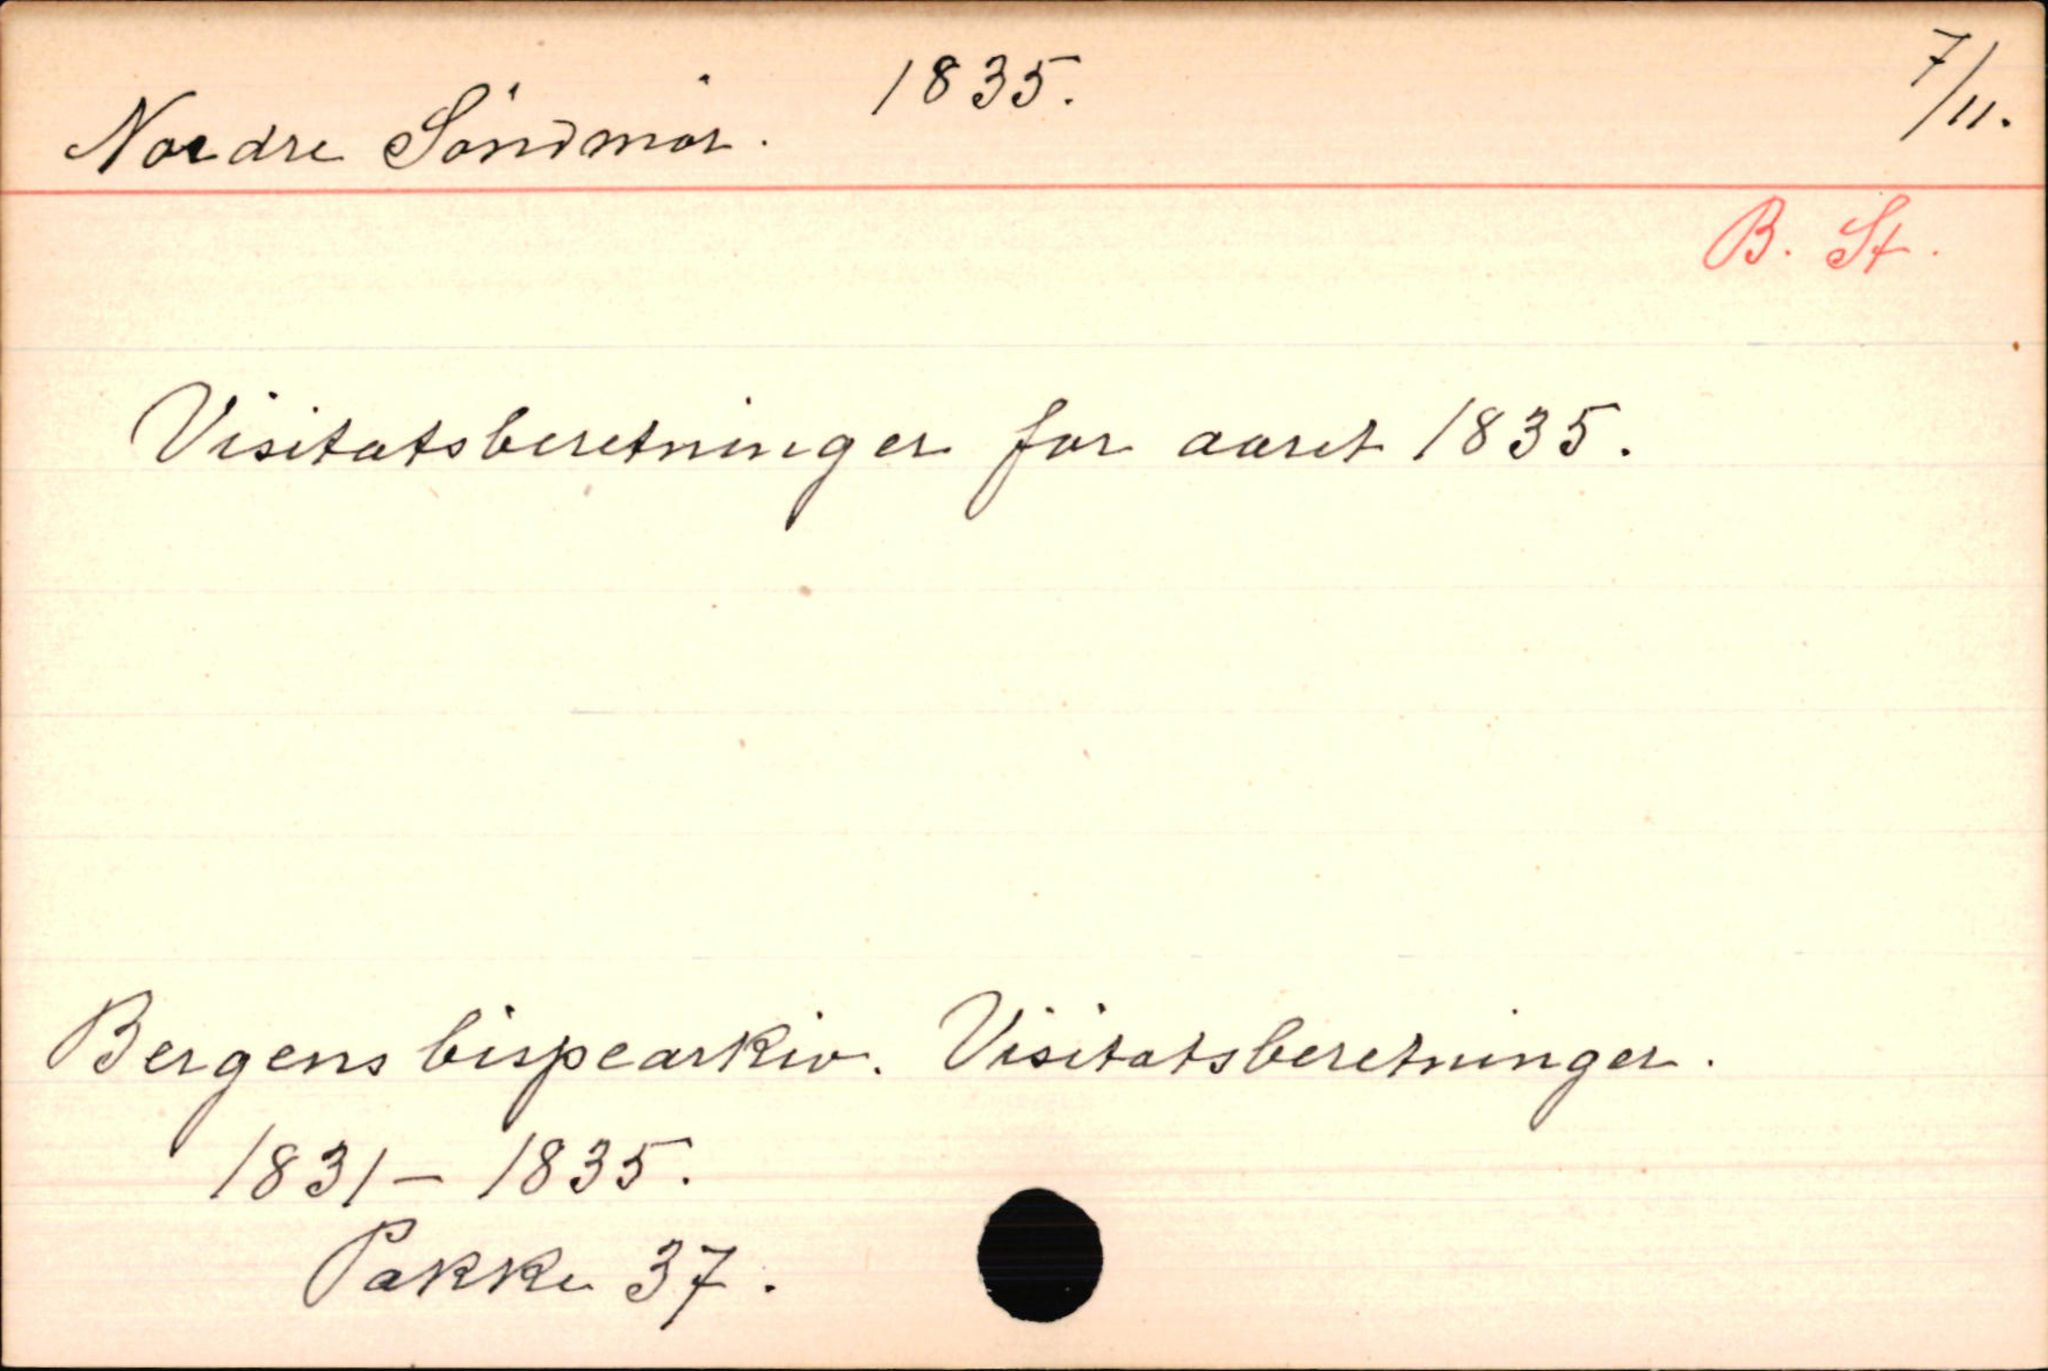 Nordre Söndmör. 1835. 7/11.
B. St.
Visitatsberetninger for aaret 1835.
Bergens bispearkiv. Visitatsberetninger.
1831 – 1835.
Pakke 37.